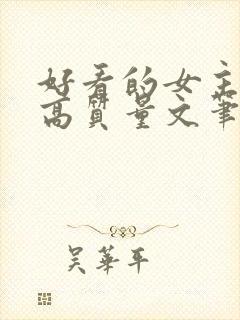 好看的女主
高质量文笔
吴华平